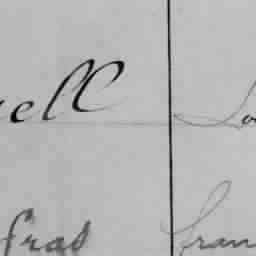 ell Lo
fras fran